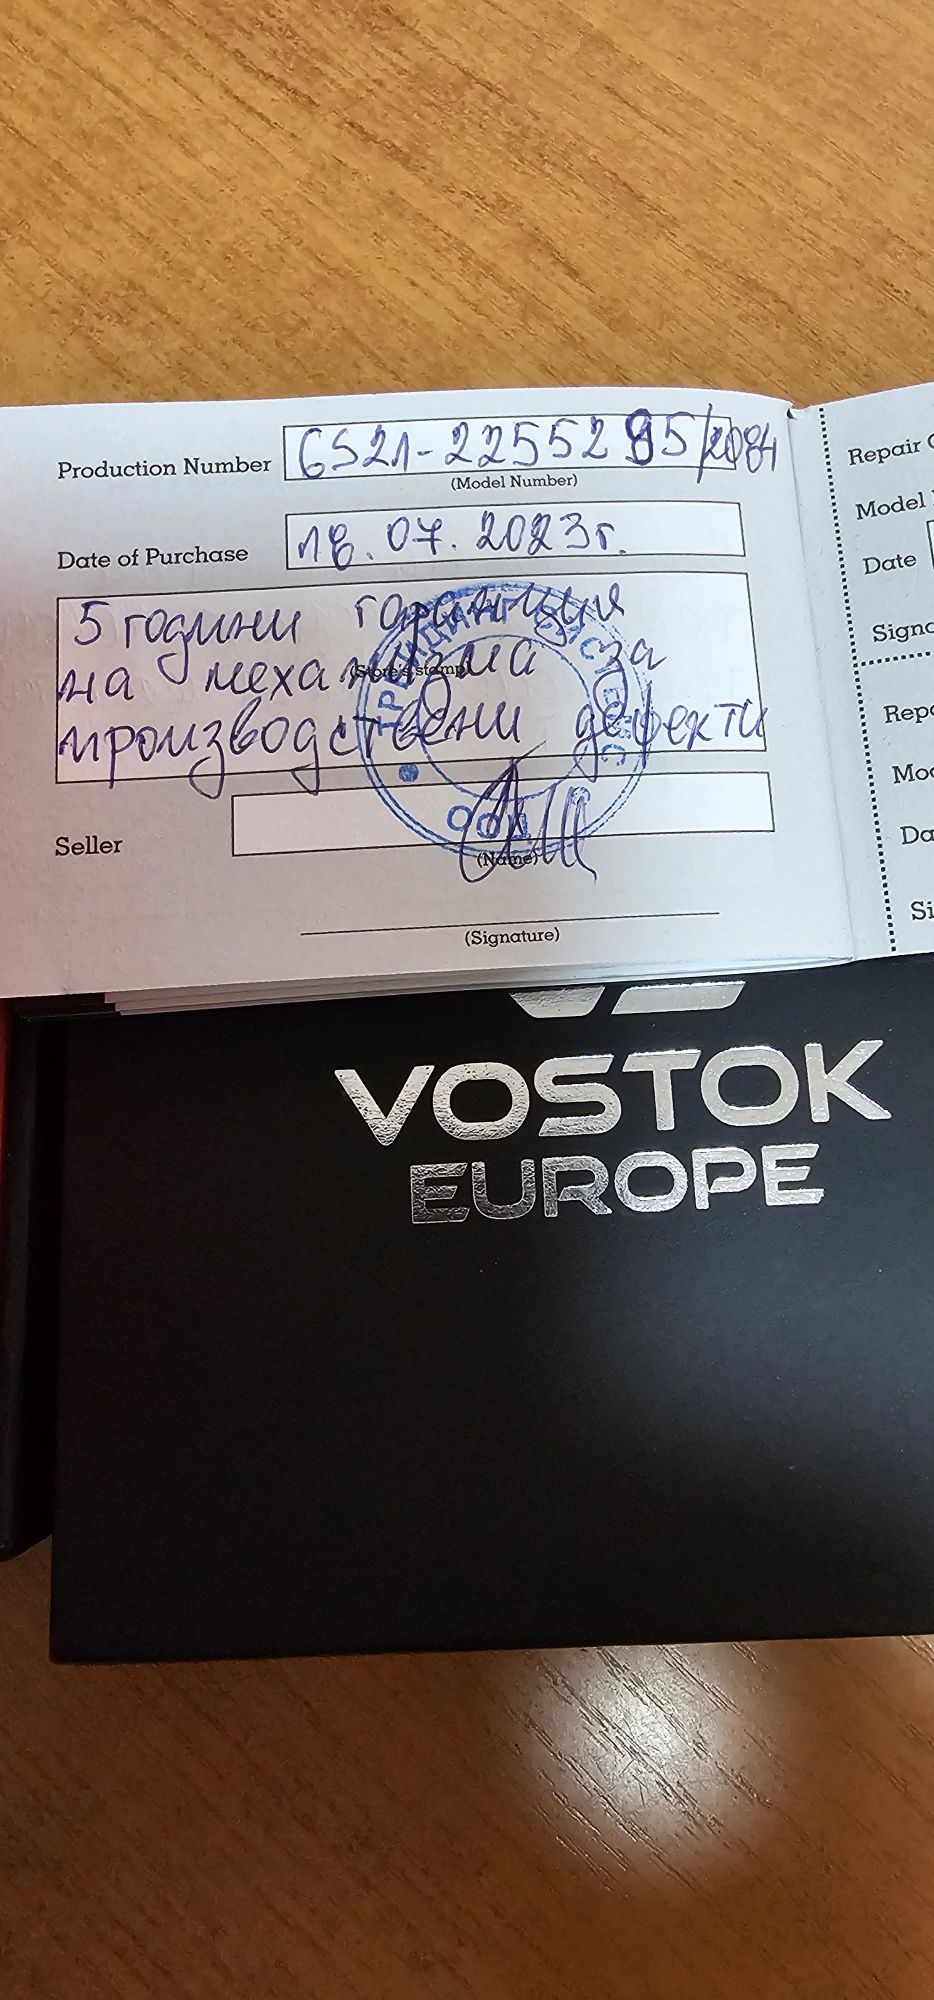 Production Number 6S21-2255295/2084
(Model Number)
Date of Purchase 18.07.2023г.
5 години гаранция
на механизма за
(Store's stamp)
производствени дефекти
ООД
Seller
(Name)
(Signature)
Repair
Model
Date
VOSTOK
EUROPE